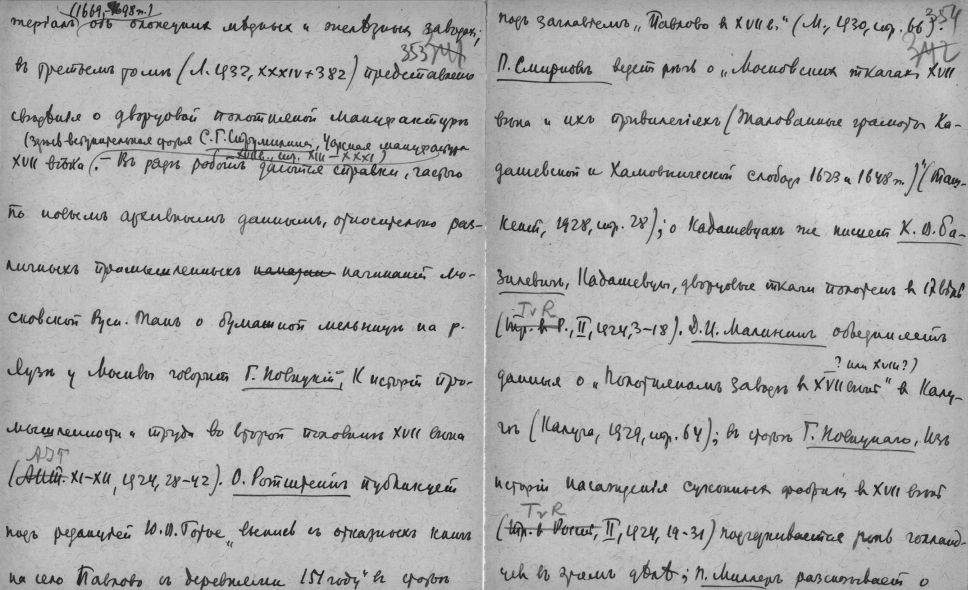 (1669, 1698 гг.)
теріалъ объ олонецкихъ мѣдныхъ и желѣзныхъ заводахъ;
353
въ третьемъ томѣ (Л. 1932, XXXIV+382) представлено
свѣдѣнія о дворцовой полотняной мануфактурѣ
(здѣсь вступительная статья С. Г. Струмилина, Царская мануфактура
XVII в., стр. XIII–XXXI)
XVII вѣка. – Въ рядѣ работъ даются справки, часто
по новымъ архивнымъ даннымъ, относительно раз-
личныхъ промышленныхъ начинаній Мо-
сковской Руси. Такъ о бумажной мельницѣ на р.
Яузѣ у Москвы говоритъ Г. Новицкій, Къ исторіи про-
мышленности и труда во второй половинѣ XVII вѣка
АІТ
(XI–XII, 1924, 28–42). О. Ротштейнъ публикуетъ
подъ редакціей Ю. В. Готье „выписъ съ отказныхъ книгъ
на село Павлово съ деревнями 151 году" въ статьѣ
354
подъ заглавіемъ „Павлово въ XVII в." (М., 1930, стр. 66).
342
П. Смирновъ ведетъ рѣчь о „Московскихъ ткачахъ XVII
вѣка и ихъ привилегіяхъ (Жалованныя грамоты Ка-
дашевской и Хамовнической слободѣ 1623 и 1648 гг.)" (Таш-
кентъ, 1928, стр. 28); о Кадашевцахъ же пишетъ К. В. Ба-
зилевичъ, Кадашевцы, дворцовые ткачи полотенъ въ 17 вѣкѣ
TvR
(II, 1924, 3–18). Д. И. Малининъ объединяетъ
? или XVIII?)
данныя о „Полотняномъ Заводѣ въ XVII вѣкѣ" въ Калу-
гѣ (Калуга, 1929, стр. 64); въ статьѣ Г. Новицкаго, Изъ
исторіи насажденія суконныхъ фабрикъ въ XVII вѣкѣ
TvR
(II, 1924, 19–31) подчеркивается роль голланд-
цевъ въ этомъ дѣлѣ; П. Миллеръ разсказываетъ о